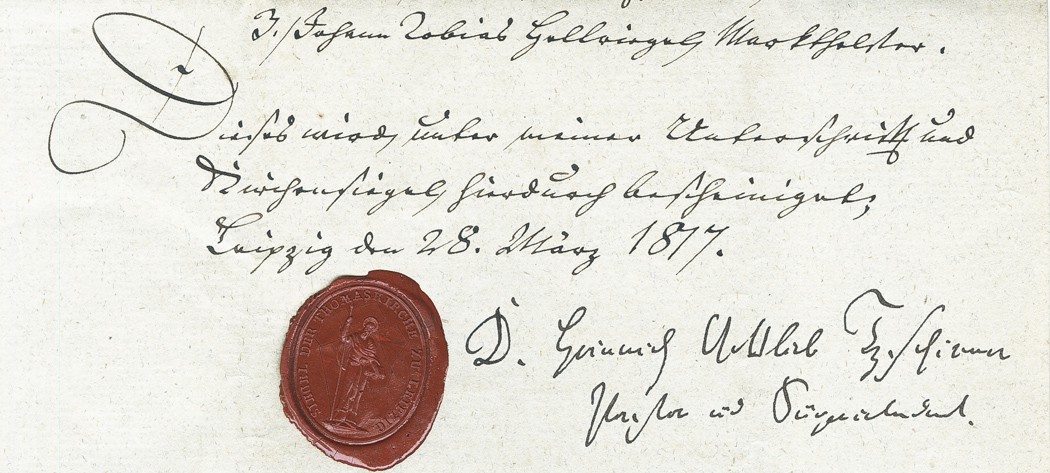 3. / Johann Tobias Hellriegel, Markthelfer.
Dieses wird, unter meiner Unterschrift und
Kirchensiegel, hierdurch bescheiniget;
Leipzig den 28. März 1817.
SIEGEL DER THOMASKIRCHE ZU LEIPZIG
D. Heinrich Gottlieb Tzschirner
Pastor und Superintendent.